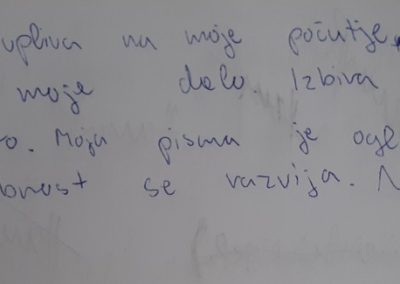 vpliva na moje počutje,
moje delo. Izbiva
o. Moja pisma je ogl
bnost se razvija. N